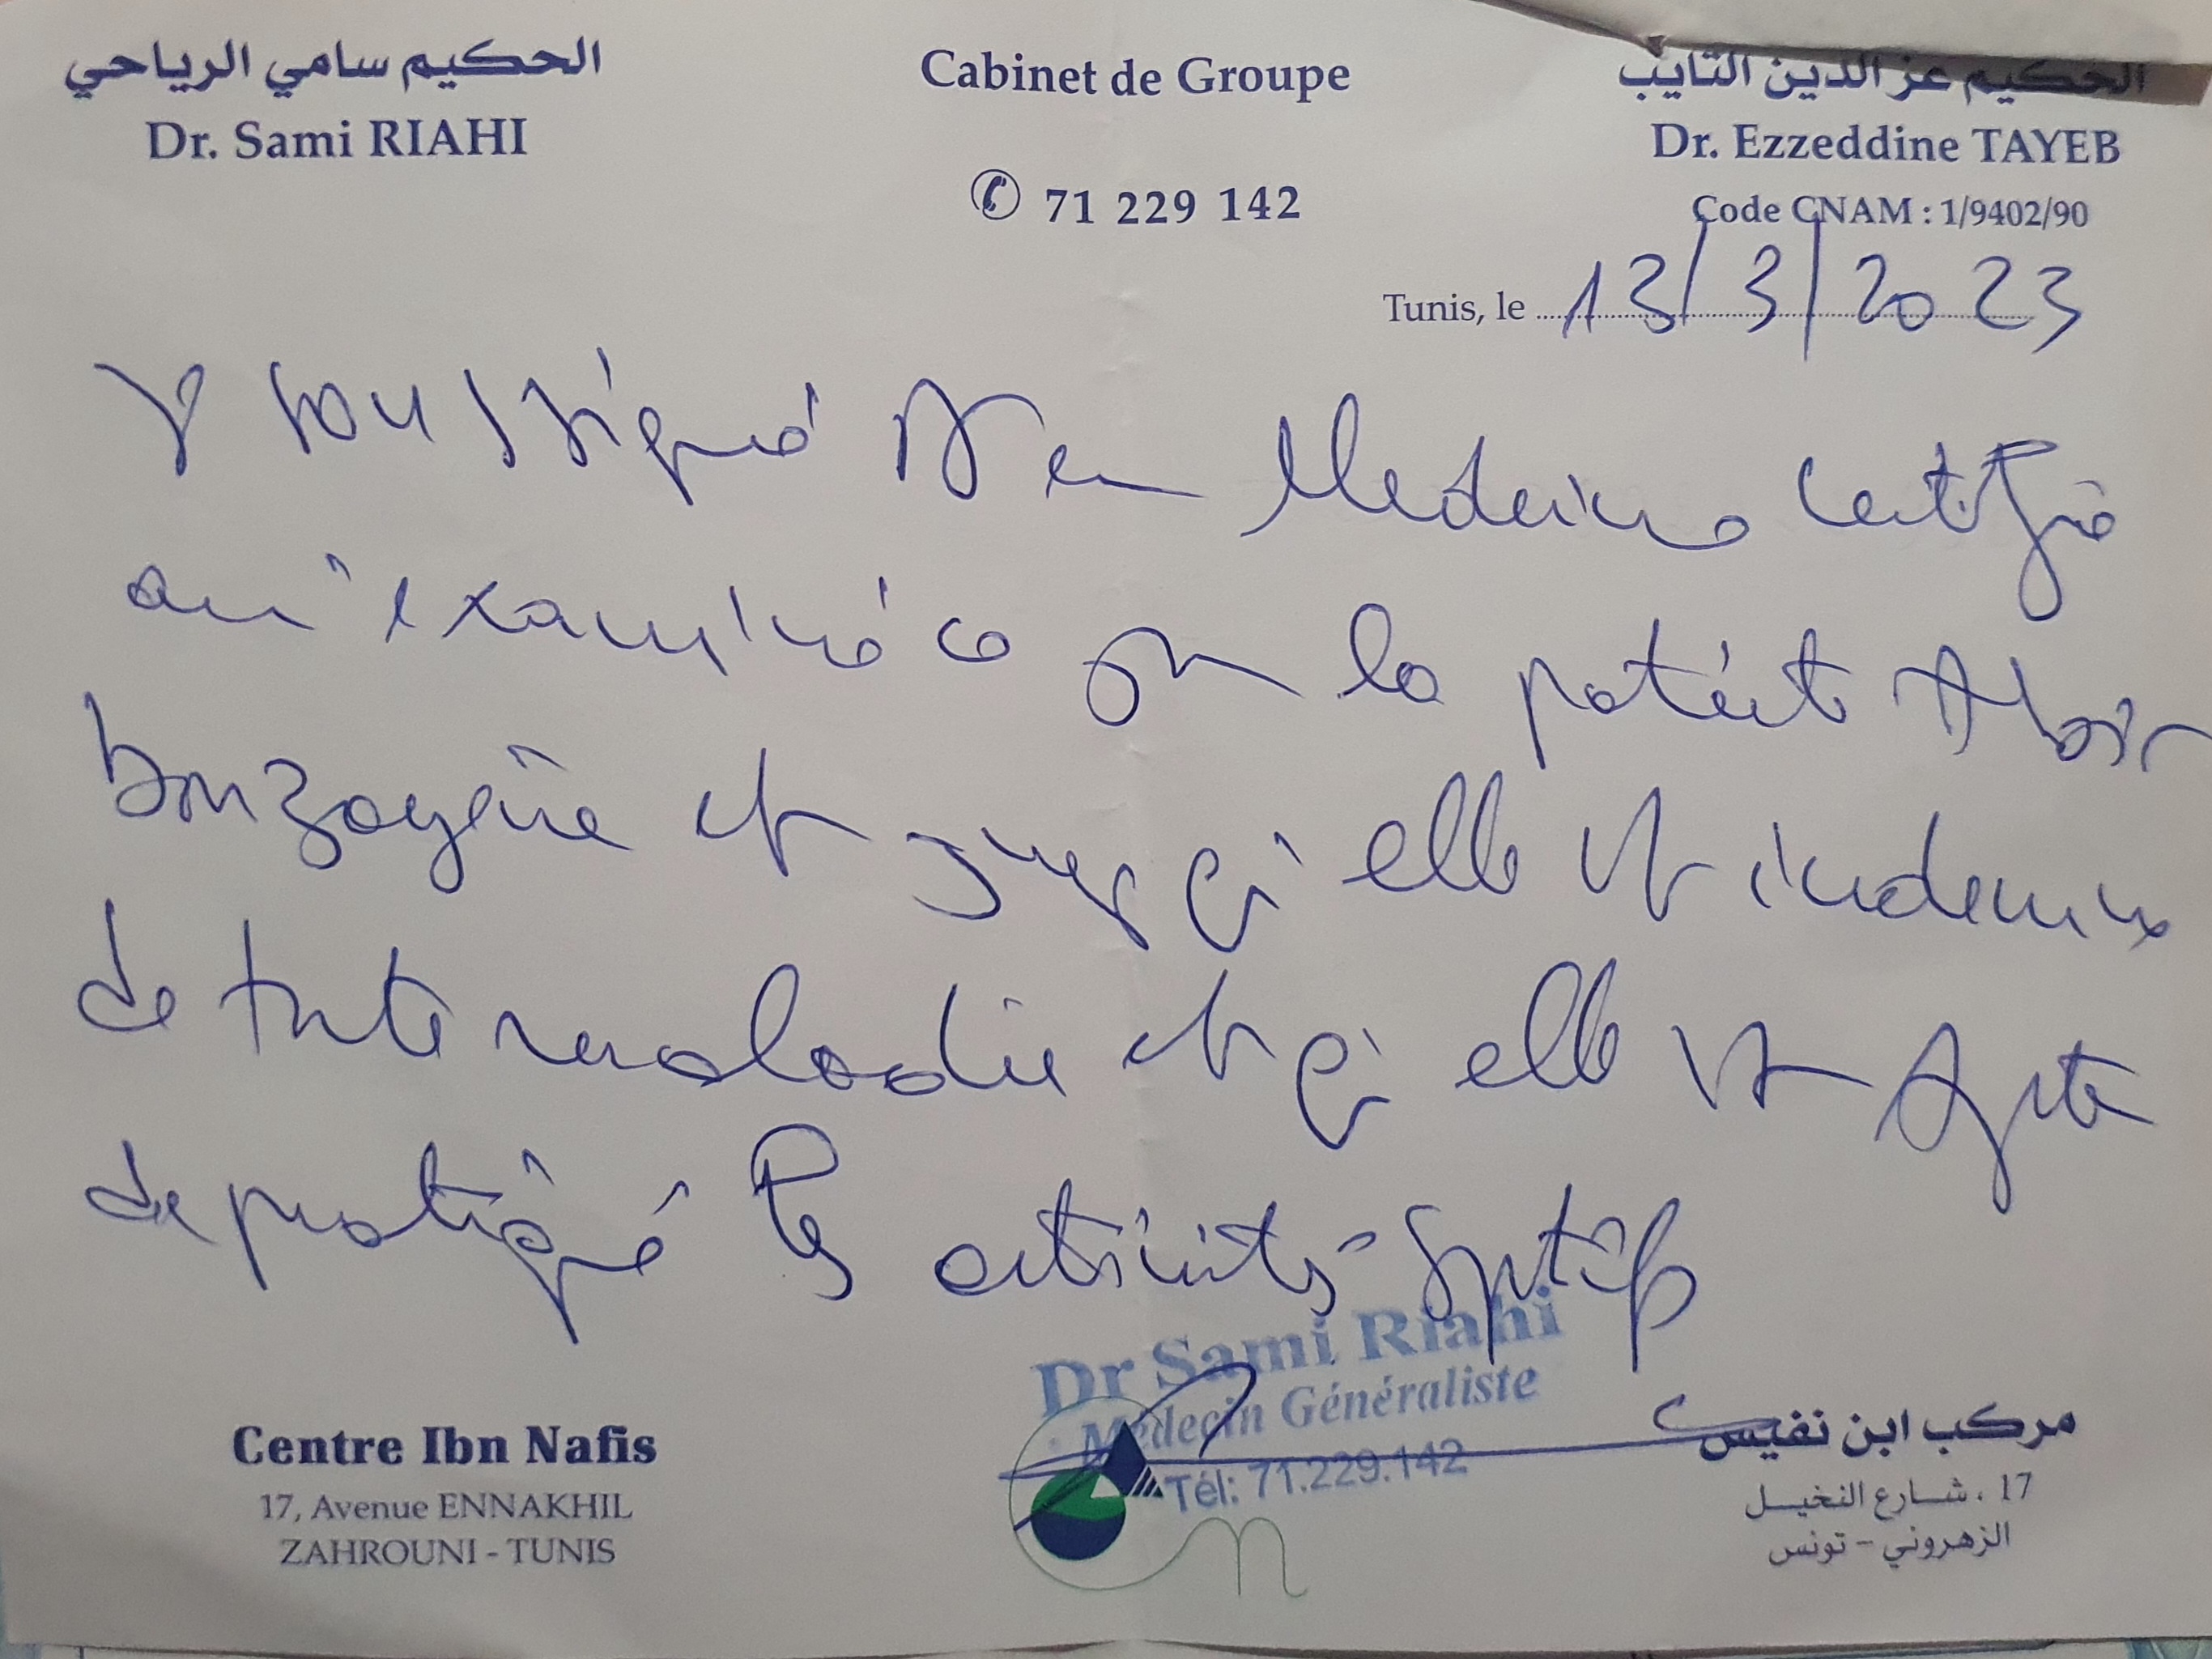 الحكيم سامي الرياحي
Dr. Sami RIAHI
Cabinet de Groupe
71 229 142
الحكيم عز الدين التايب
Dr. Ezzeddine TAYEB
Code CNAM : 1/9402/90
Tunis, le 13/3/2023
soussigné Dr en Medecine Certifie
examiné ce la patiente
et elle est indemne
de toute maladie et qu'elle est Apte
de pratiqué les activités sportifs
Dr Sami Riahi
Médecin Généraliste
Tél: 71.229.142
Centre Ibn Nafis
17, Avenue ENNAKHIL
ZAHROUNI - TUNIS
مركب ابن نفيس
17 ، شارع النخيل
الزهروني - تونس